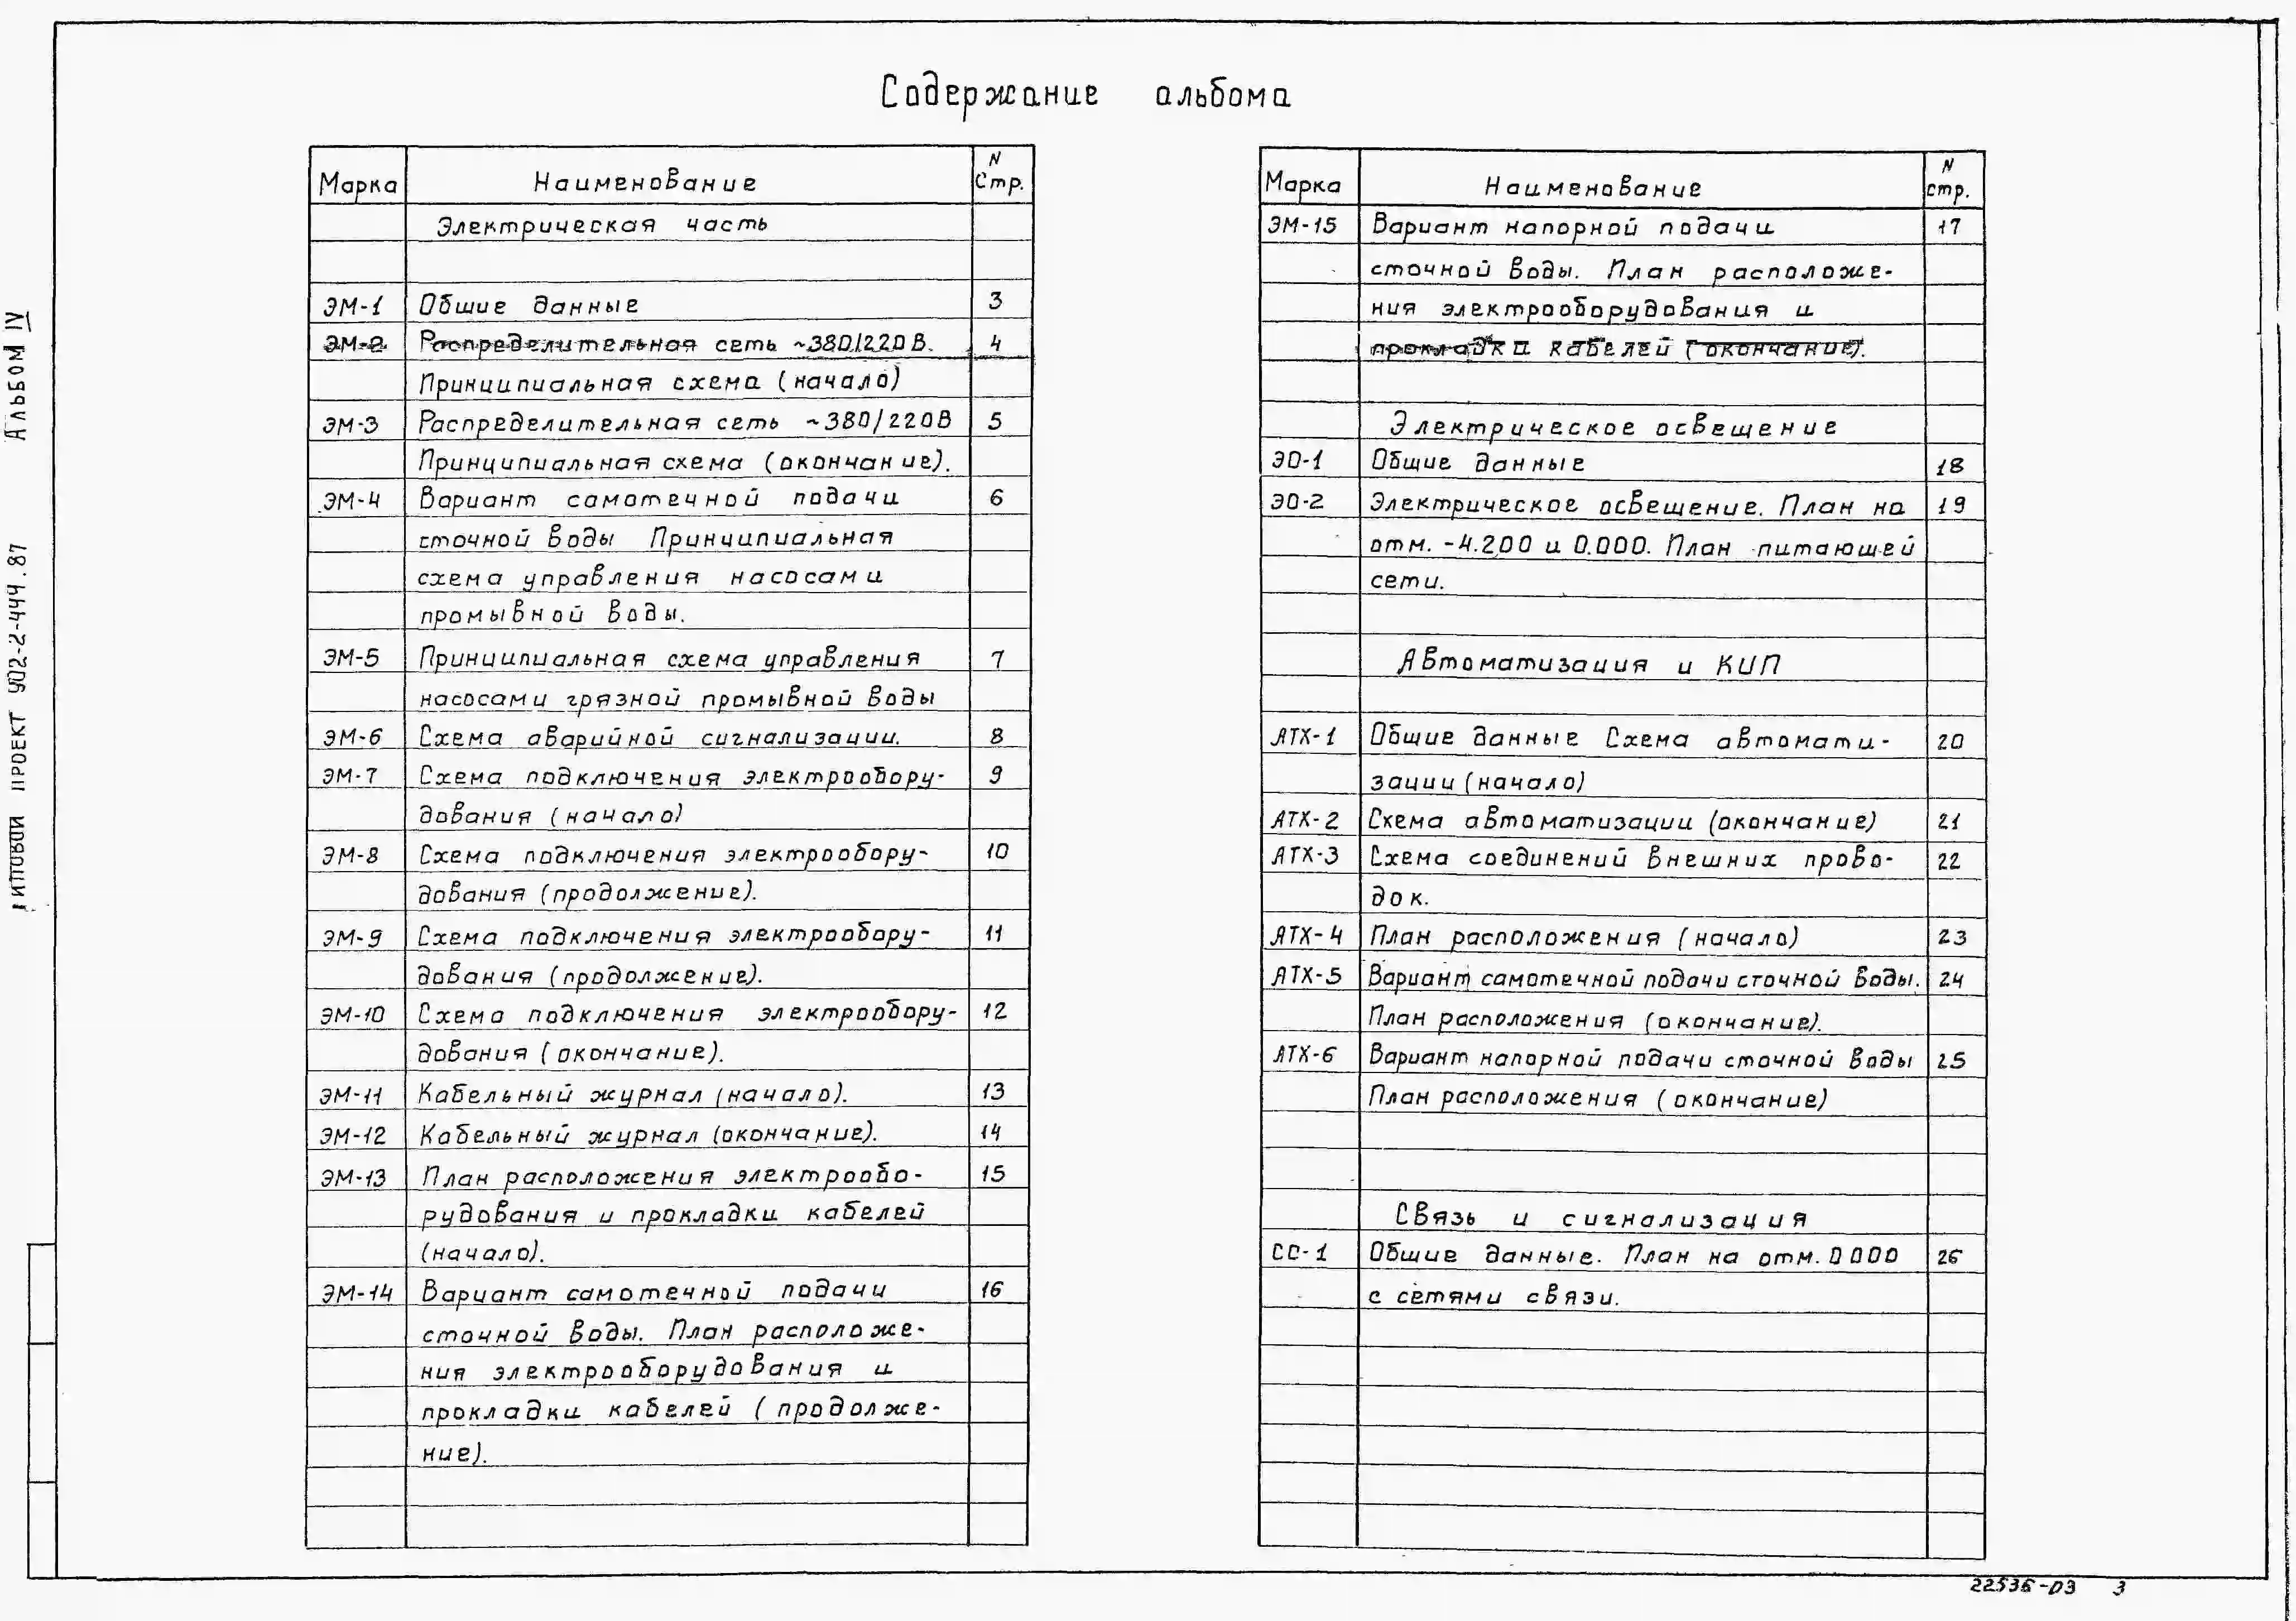 Содержание альбома
Марка Наименование N Стр.
Электрическая часть
ЭМ-1 Общие данные 3
ЭМ-2 Распределительная сеть ~380/220В. 4
Принципиальная схема (начало)
ЭМ-3 Распределительная сеть ~380/220В 5
Принципиальная схема (окончание).
ЭМ-4 Вариант самотечной подачи 6
сточной воды Принципиальная
схема управления насосами
промывной воды.
ЭМ-5 Принципиальная схема управления 7
насосами грязной промывной воды
ЭМ-6 Схема аварийной сигнализации. 8
ЭМ-7 Схема подключения электрообору- 9
дования (начало)
ЭМ-8 Схема подключения электрообору- 10
дования (продолжение).
ЭМ-9 Схема подключения электрообору- 11
дования (продолжение).
ЭМ-10 Схема подключения электрообору- 12
дования (окончание).
ЭМ-11 Кабельный журнал (начало). 13
ЭМ-12 Кабельный журнал (окончание). 14
ЭМ-13 План расположения электрообо- 15
рудования и прокладки кабелей
(начало).
ЭМ-14 Вариант самотечной подачи 16
сточной воды. План расположе-
ния электрооборудования и
прокладки кабелей (продолже-
ние).
Марка Наименование N стр.
ЭМ-15 Вариант напорной подачи 17
сточной воды. План расположе-
ния электрооборудования и
прокладки кабелей (окончание).
Электрическое освещение
ЭО-1 Общие данные 18
ЭО-2 Электрическое освещение. План на 19
отм. -4.200 и 0.000. План питающей
сети.
Автоматизация и КИП
АТХ-1 Общие данные Схема автомати- 20
зации (начало)
АТХ-2 Схема автоматизации (окончание) 21
АТХ-3 Схема соединений внешних прово- 22
док.
АТХ-4 План расположения (начало) 23
АТХ-5 Вариант самотечной подачи сточной воды. 24
План расположения (окончание).
АТХ-6 Вариант напорной подачи сточной воды 25
План расположения (окончание)
Связь и сигнализация
СС-1 Общие данные. План на отм. 0000 26
с сетями связи.
Типовой проект 902-2-444.87 Альбом IV
22536-03 3